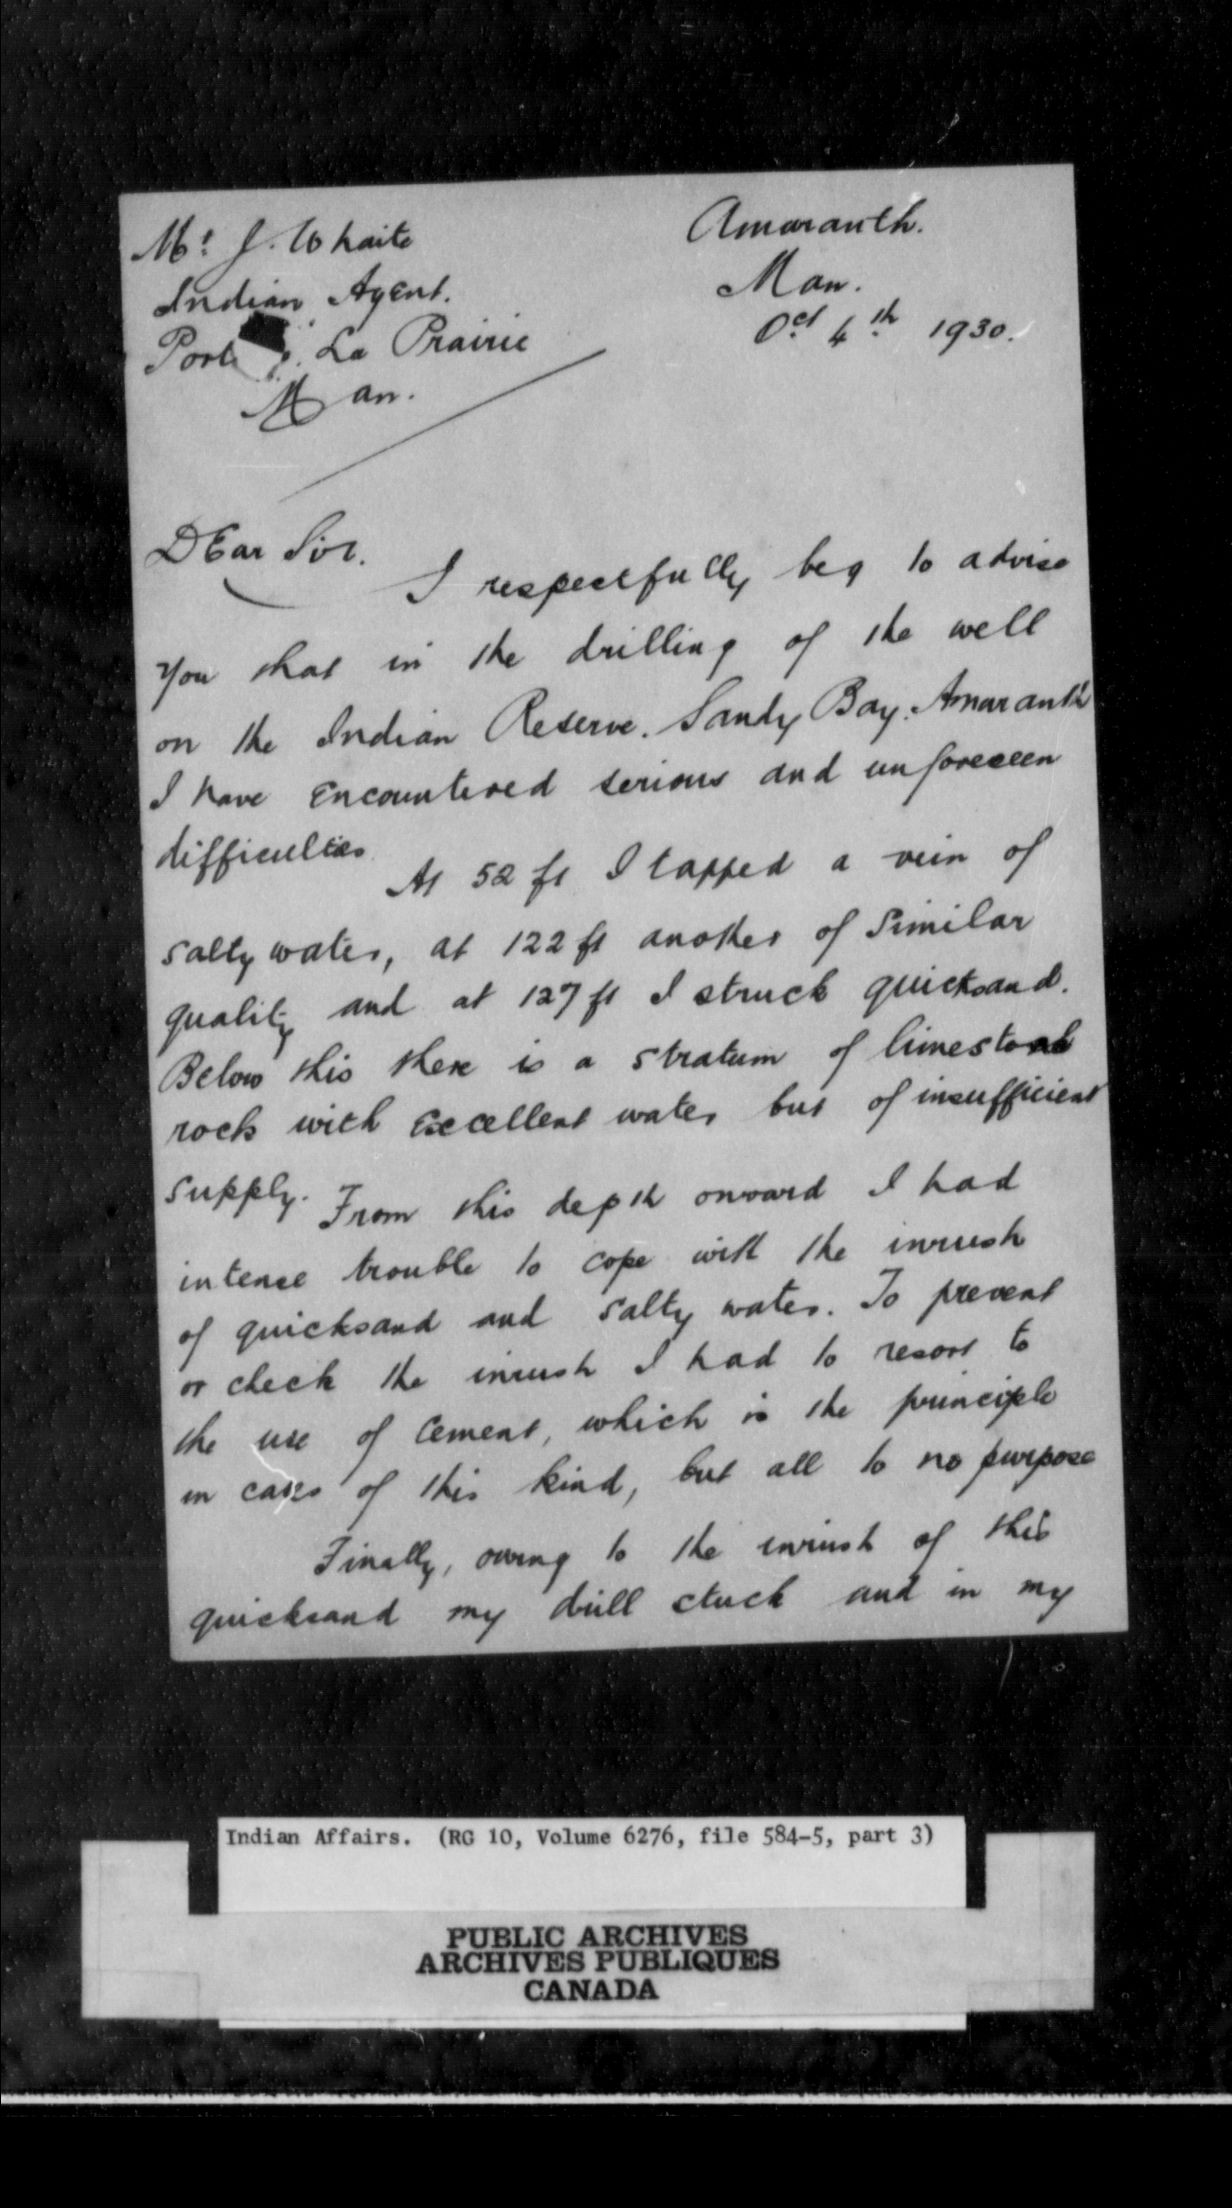 Mr. J. Waite
Indian Agent.
Port g. La Prairie
Man.
Amaranth.
Man.
Oct 4th 1930.
Dear Sir.
I respectfully beg to advise
you that in the drilling of the well
on the Indian Reserve. Sandy Bay. Amaranth
I have encountered serious and unforeseen
difficulties
At 52 ft I tapped a vein of
salty water, at 122 ft another of similar
quality and at 127 ft I struck quicksand.
Below this there is a stratum of limestone
rock with excellent water but of insufficient
supply. From this depth onward I had
intense trouble to cope with the inrush
of quicksand and salty water. To prevent
or check the inrush I had to resort to
the use of cement, which is the principle
in cases of this kind, but all to no purpose
Finally, owing to the inrush of this
quicksand my drill stuck and in my
Indian Affairs. (RG 10, Volume 6276, file 584-5, part 3)
PUBLIC ARCHIVES
ARCHIVES PUBLIQUES
CANADA